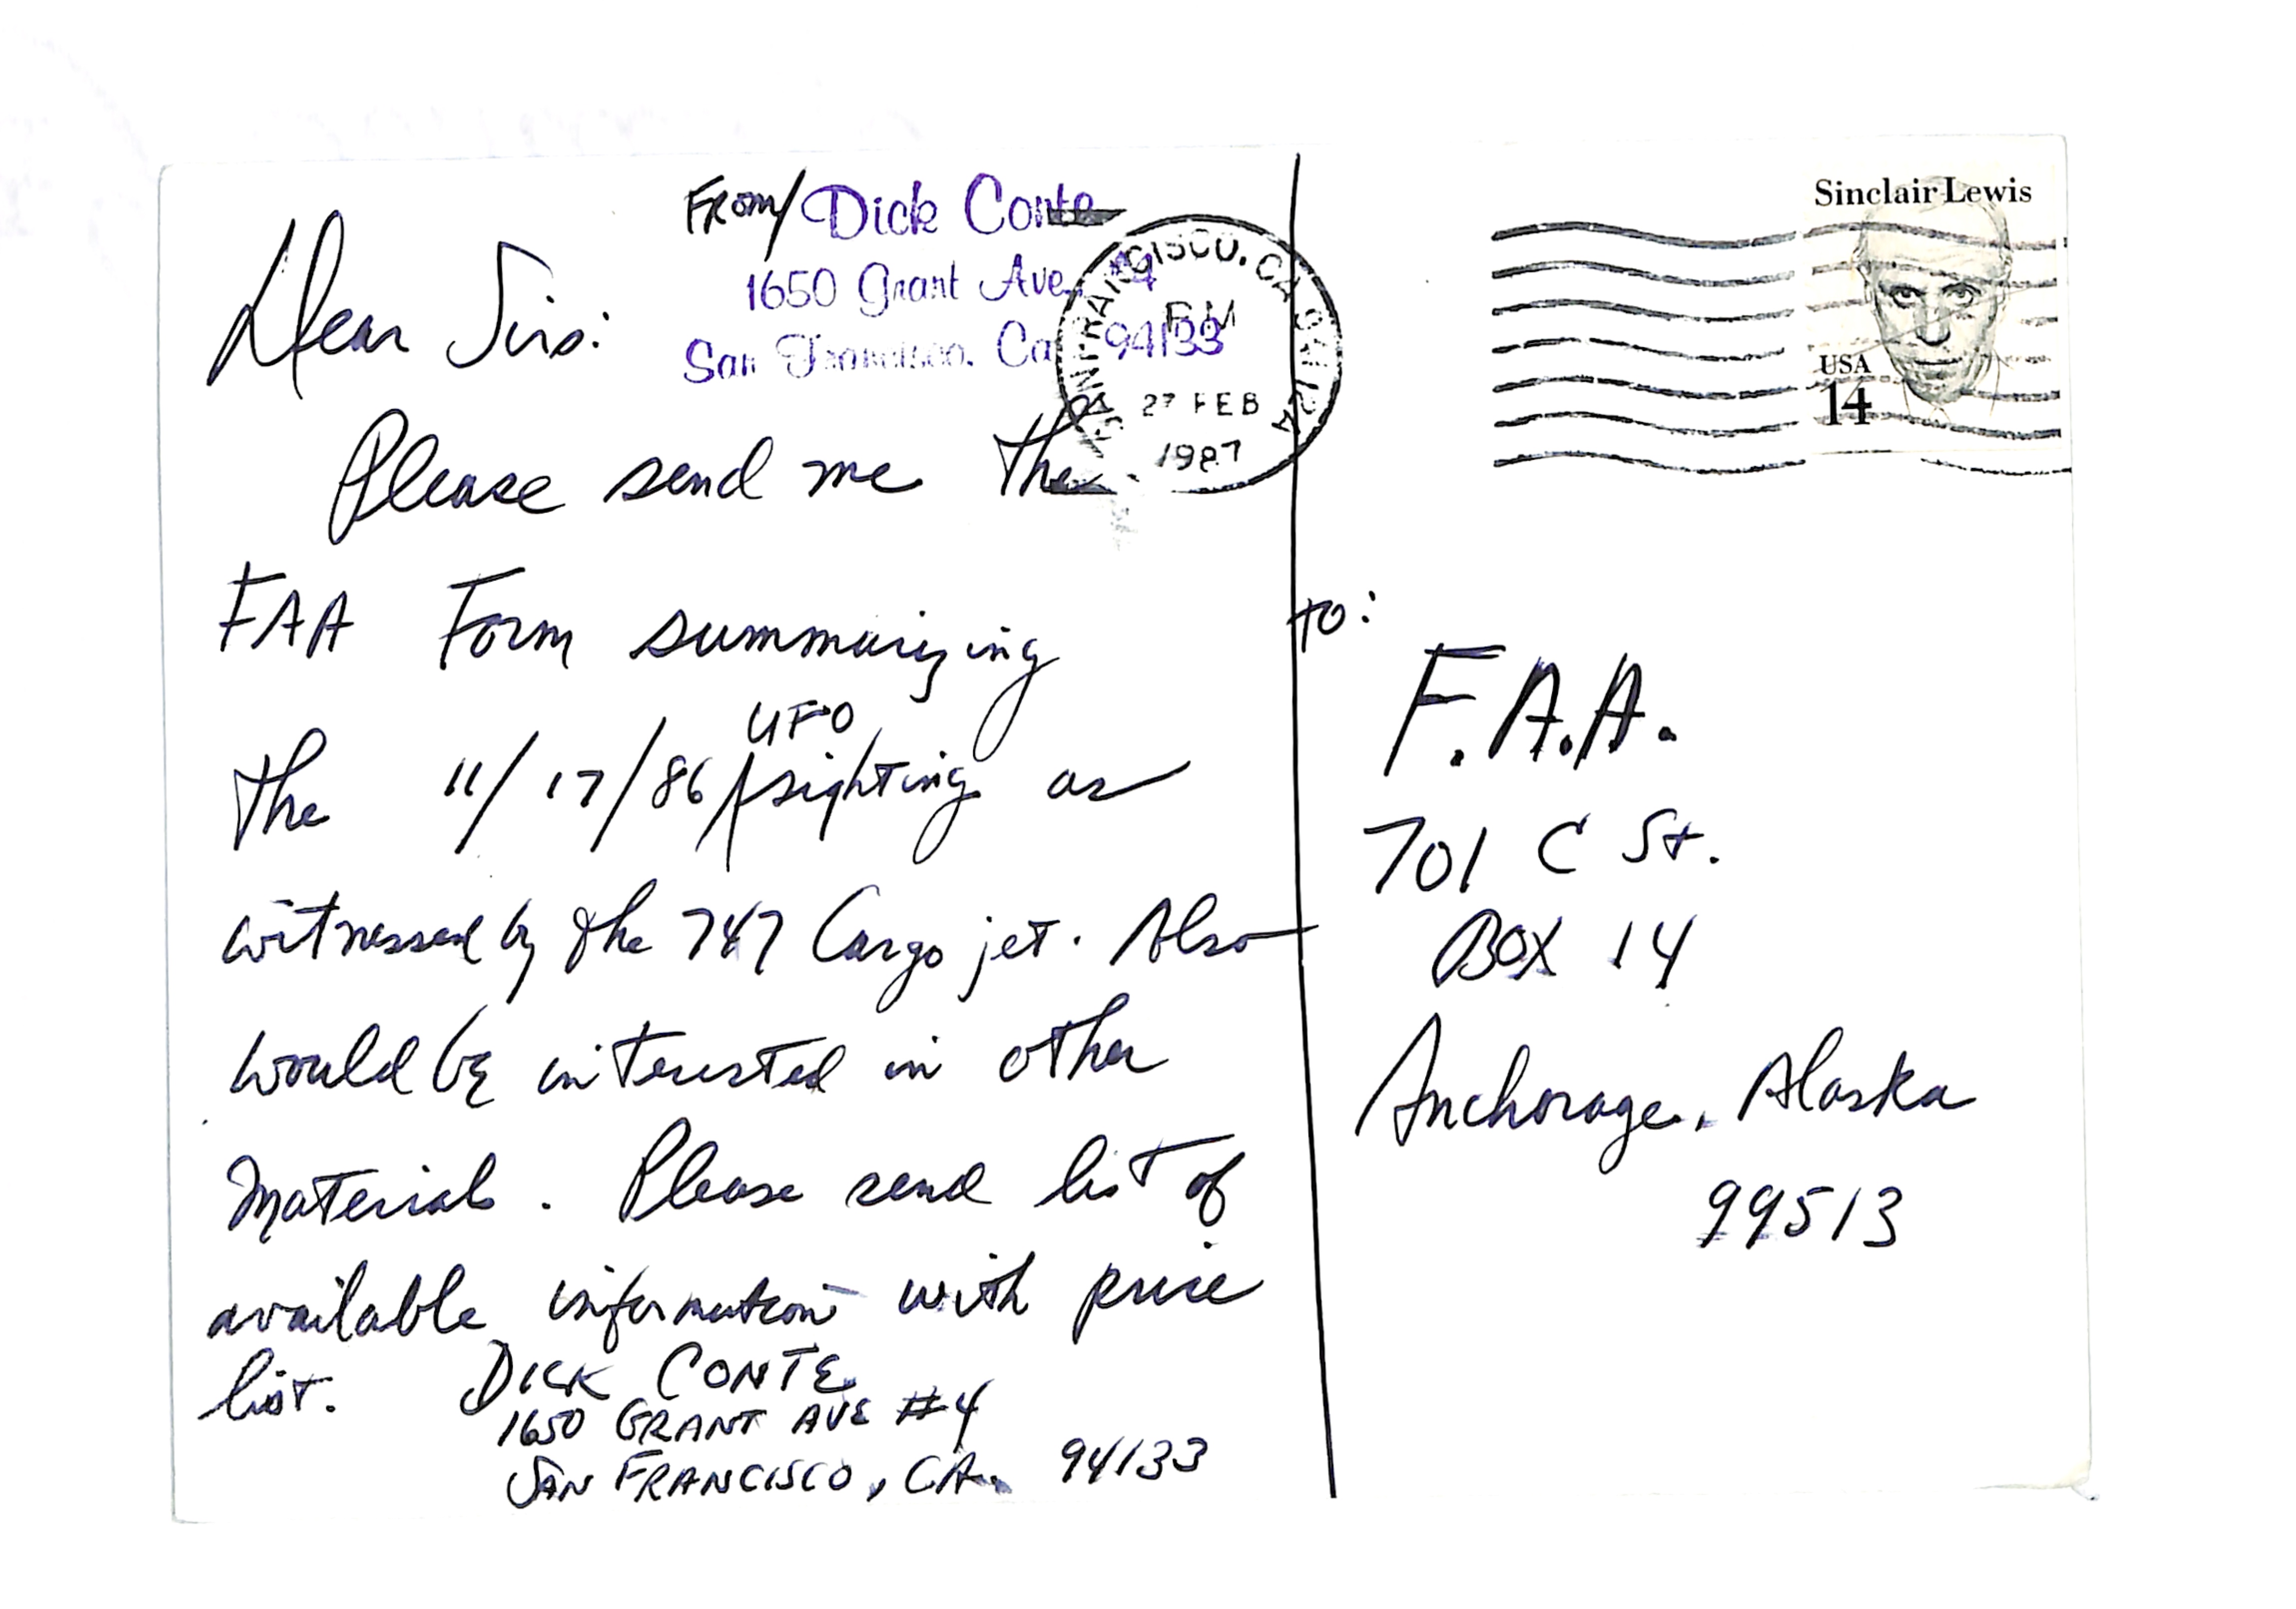 From/ Dick Conte
1650 Grant Ave. 4
San Francisco. Ca 94133
SAN FRANCISCO, CA
PM
27 FEB
1987
Sinclair Lewis
USA
14
Dear Sirs:
Please send me the
FAA Form summarizing
the 11/17/86 UFO sighting as
witnessed by the 747 Cargo jet. Also
would be interested in other
Material. Please send list of
available information with price
list.
DICK CONTE
1650 GRANT AVE #4
SAN FRANCISCO, CA. 94133
TO:
F.A.A.
701 C St.
BOX 14
Anchorage, Alaska
99513